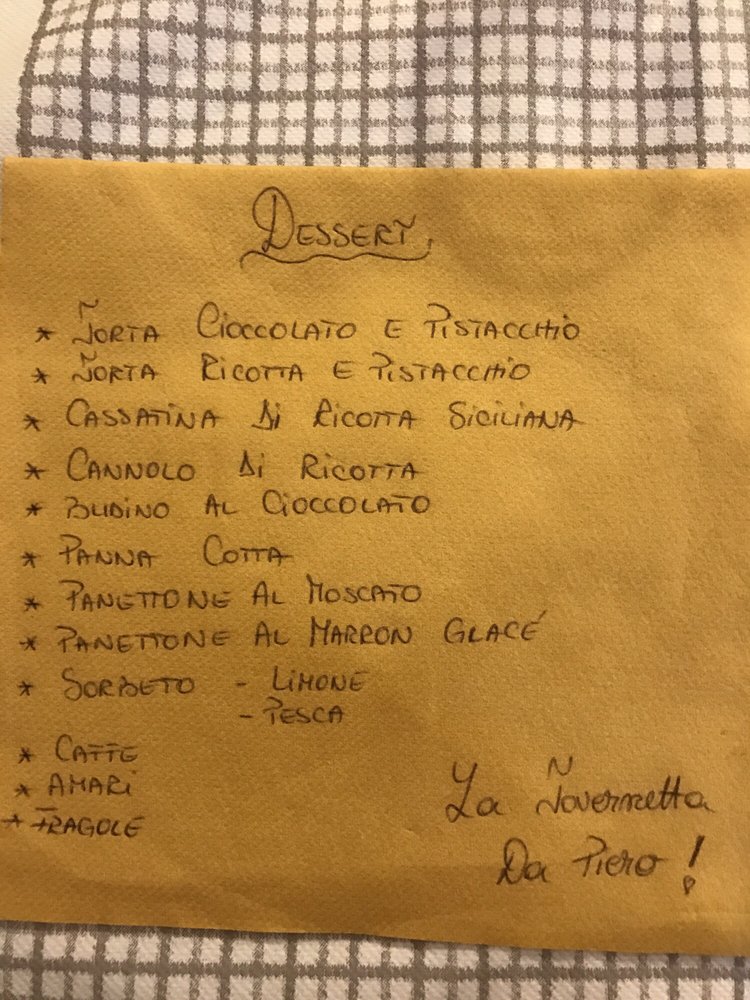 DESSERT
* TORTA CIOCCOLATO E PISTACCHIO
* TORTA RICOTTA E PISTACCHIO
* CASSATINA DI RICOTTA SICILIANA
* CANNOLO DI RICOTTA
* BUDINO AL CIOCCOLATO
* PANNA COTTA
* PANETTONE AL MOSCATO
* PANETTONE AL MARRON GLACÉ
* SORBETO - LIMONE
- PESCA
* CAFFE
* AMARI
* FRAGOLE
La Tavernetta
Da Piero!